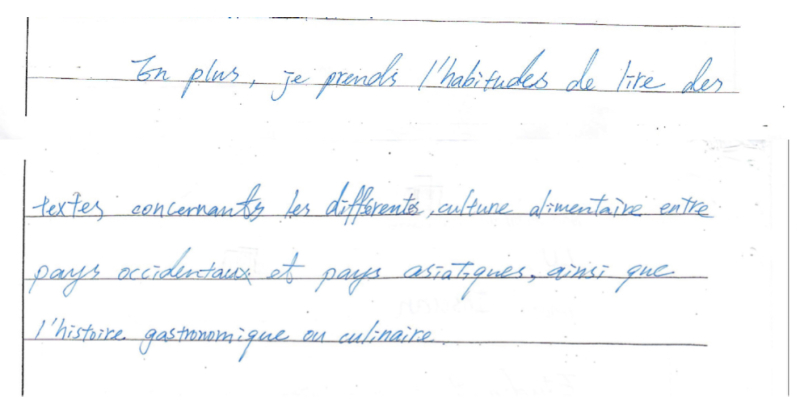 En plus, je prends l'habitudes de lire des
textes concernants les différents culture alimentaire entre
pays occidentaux et pays asiatiques, ainsi que
l'histoire gastronomique ou culinaire